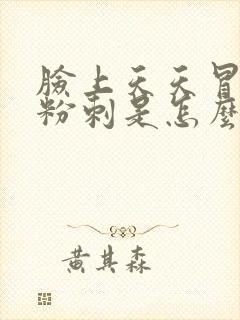 臉上天天冒
粉刺是怎麼
黃其森